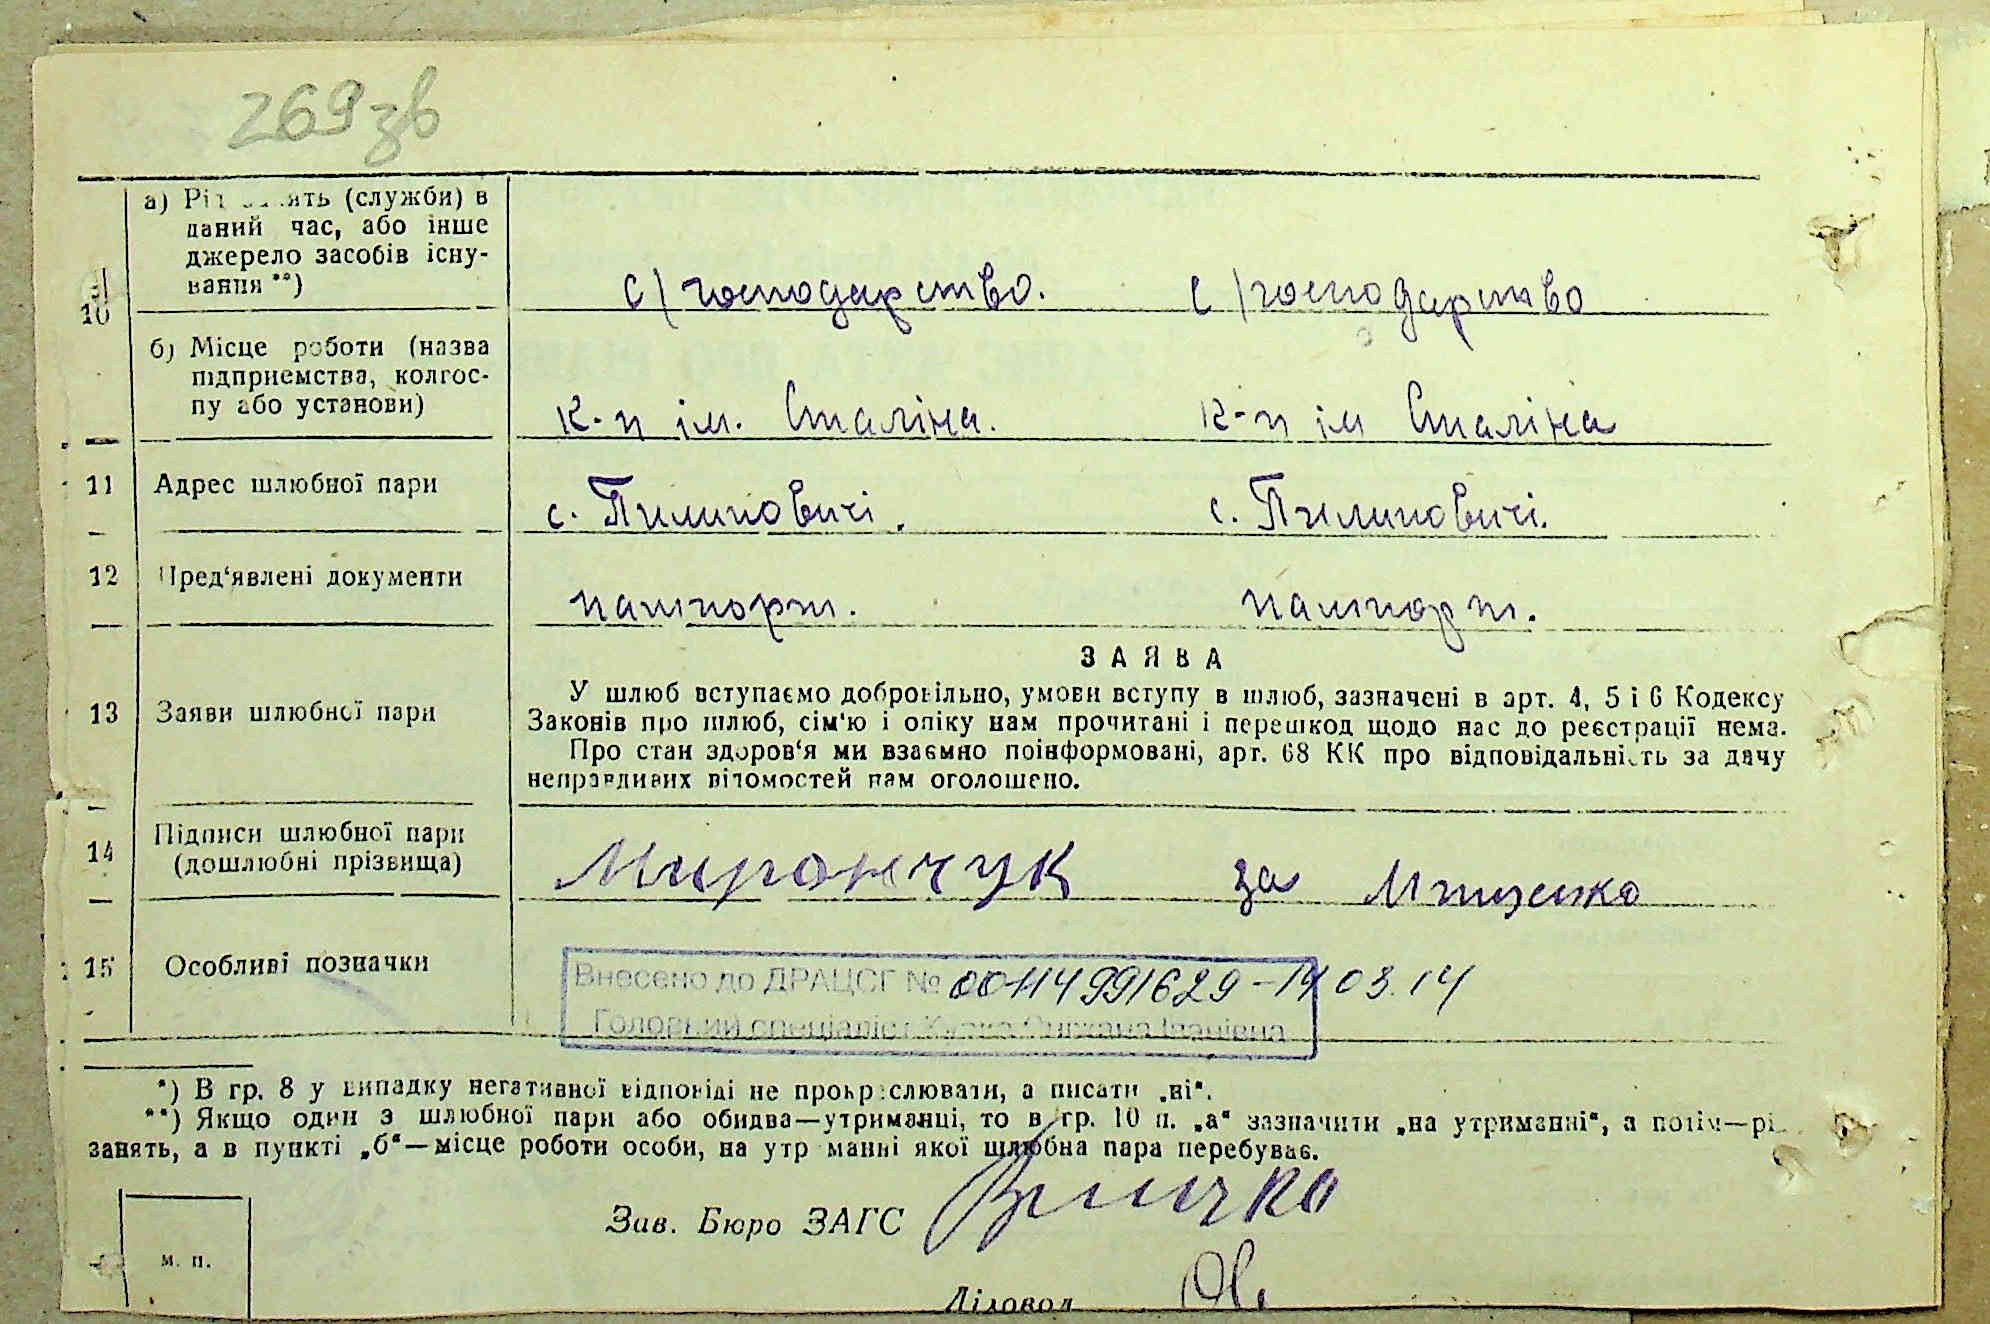 269 зв
а) Рід занять (служби) в
даний час, або інше
джерело засобів існу-
вання **)
с/господарство. с/господарство
10
б) Місце роботи (назва
підприємства, колгос-
пу або установи)
к-п ім. Сталіна. к-п ім Сталіна
11 Адрес шлюбної пари с. Пилиповичі. с. Пилиповичі.
12 Пред'явлені документи пашпорт. пашпорт.
ЗАЯВА
13 Заяви шлюбної пари
У шлюб вступаємо добровільно, умови вступу в шлюб, зазначені в арт. 4, 5 і 6 Кодексу
Законів про шлюб, сім'ю і опіку нам прочитані і перешкод щодо нас до реєстрації нема.
Про стан здоров'я ми взаємно поінформовані, арт. 68 КК про відповідальність за дачу
неправдивих відомостей нам оголошено.
14 Підписи шлюбної пари
(дошлюбні прізвища)
Мирончук за
15 Особливі позначки
Внесено до ДРАЦСГ № 00114991629 - 14 03.14
Головний спеціаліст Іванівна
*) В гр. 8 у випадку негативної відповіді не прокреслювати, а писати „ні“.
**) Якщо один з шлюбної пари або обидва—утриманці, то в гр. 10 п. „а“ зазначити „на утриманні“, а потім—рід
занять, а в пункті „б“—місце роботи особи, на утриманні якої шлюбна пара перебуває.
Зав. Бюро ЗАГС
м. п.
Діловод